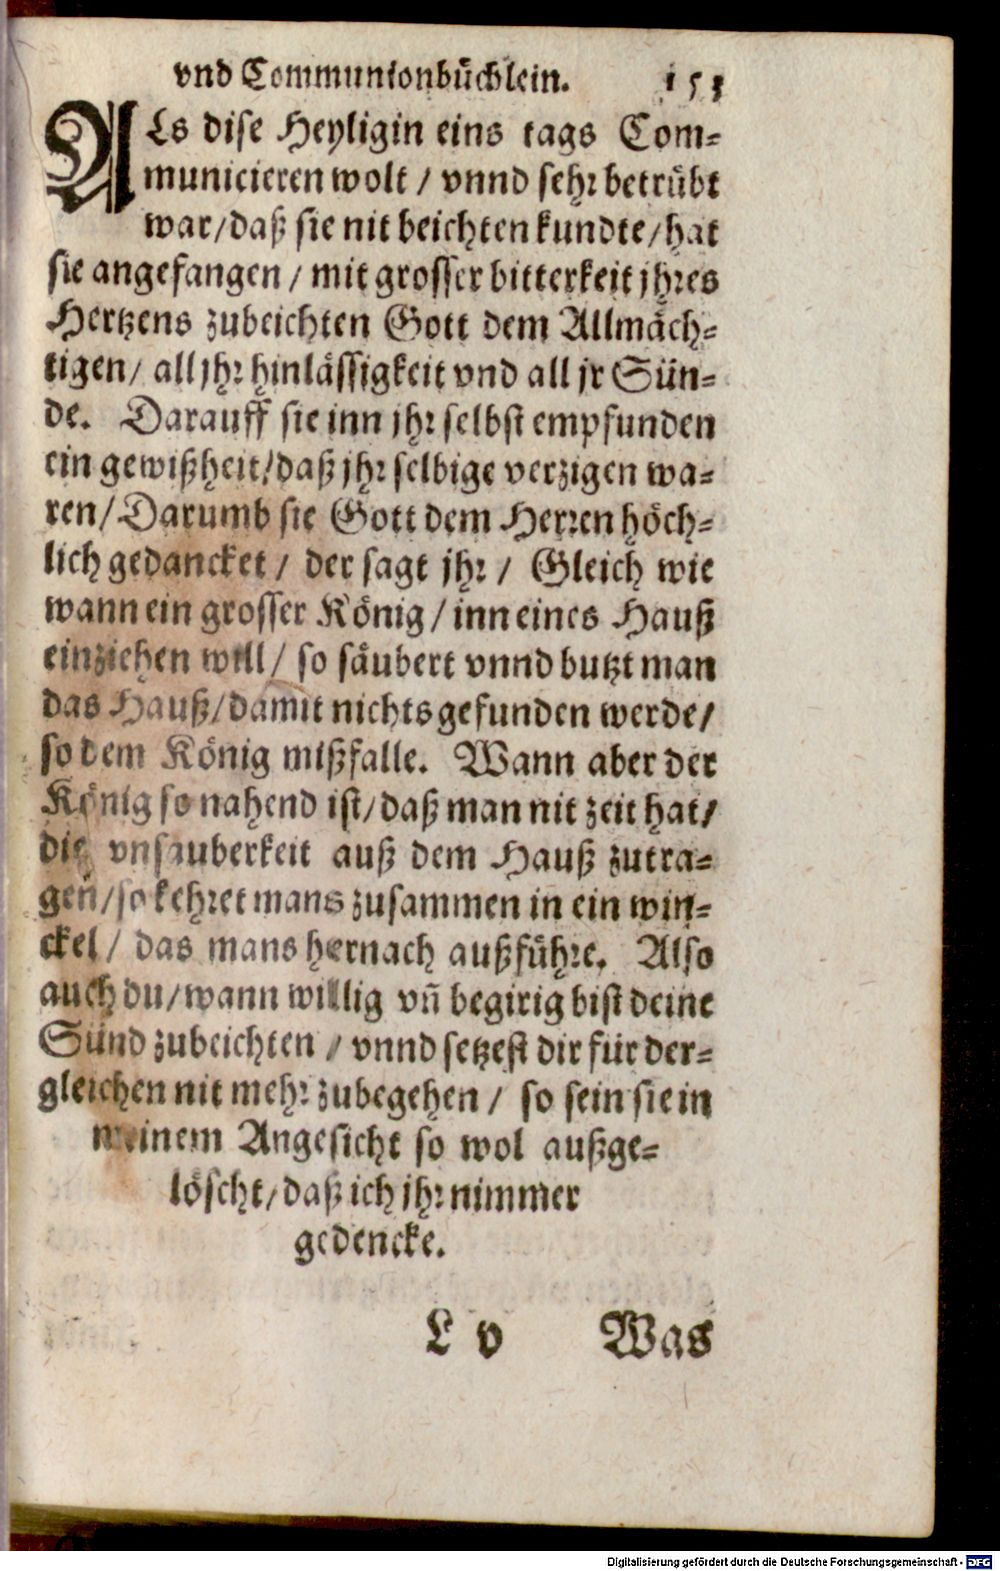 vnd Communionbüchlein. 153
ALs dise Heyligin eins tags Com-
municieren wolt / vnnd sehr betrübt
war/daß sie nit beichten kundte/hat
sie angefangen / mit grosser bitterkeit jhres
Hertzens zubeichten Gott dem Allmäch-
tigen/ all jhr hinlässigkeit vnd all jr Sün-
de. Darauff sie inn jhr selbst empfunden
ein gewißheit/daß jhr selbige verzigen wa-
ren/Darumb sie Gott dem Herren höch-
lich gedancket / der sagt jhr / Gleich wie
wann ein grosser König / inn eines Hauß
einziehen will / so säubert vnnd butzt man
das Hauß/damit nichts gefunden werde/
so dem König mißfalle. Wann aber der
König so nahend ist/daß man nit zeit hat/
die vnsauberkeit auß dem Hauß zutra-
gen/so kehret mans zusammen in ein win-
ckel / das mans hernach außführe. Also
auch du/wann willig vñ begirig bist deine
Sünd zubeichten / vnnd setzest dir für der-
gleichen nit mehr zubegehen / so sein sie in
meinem Angesicht so wol außge-
löscht/daß ich jhr nimmer
gedencke.
L v Was
Digitalisierung gefördert durch die Deutsche Forschungsgemeinschaft - DFG